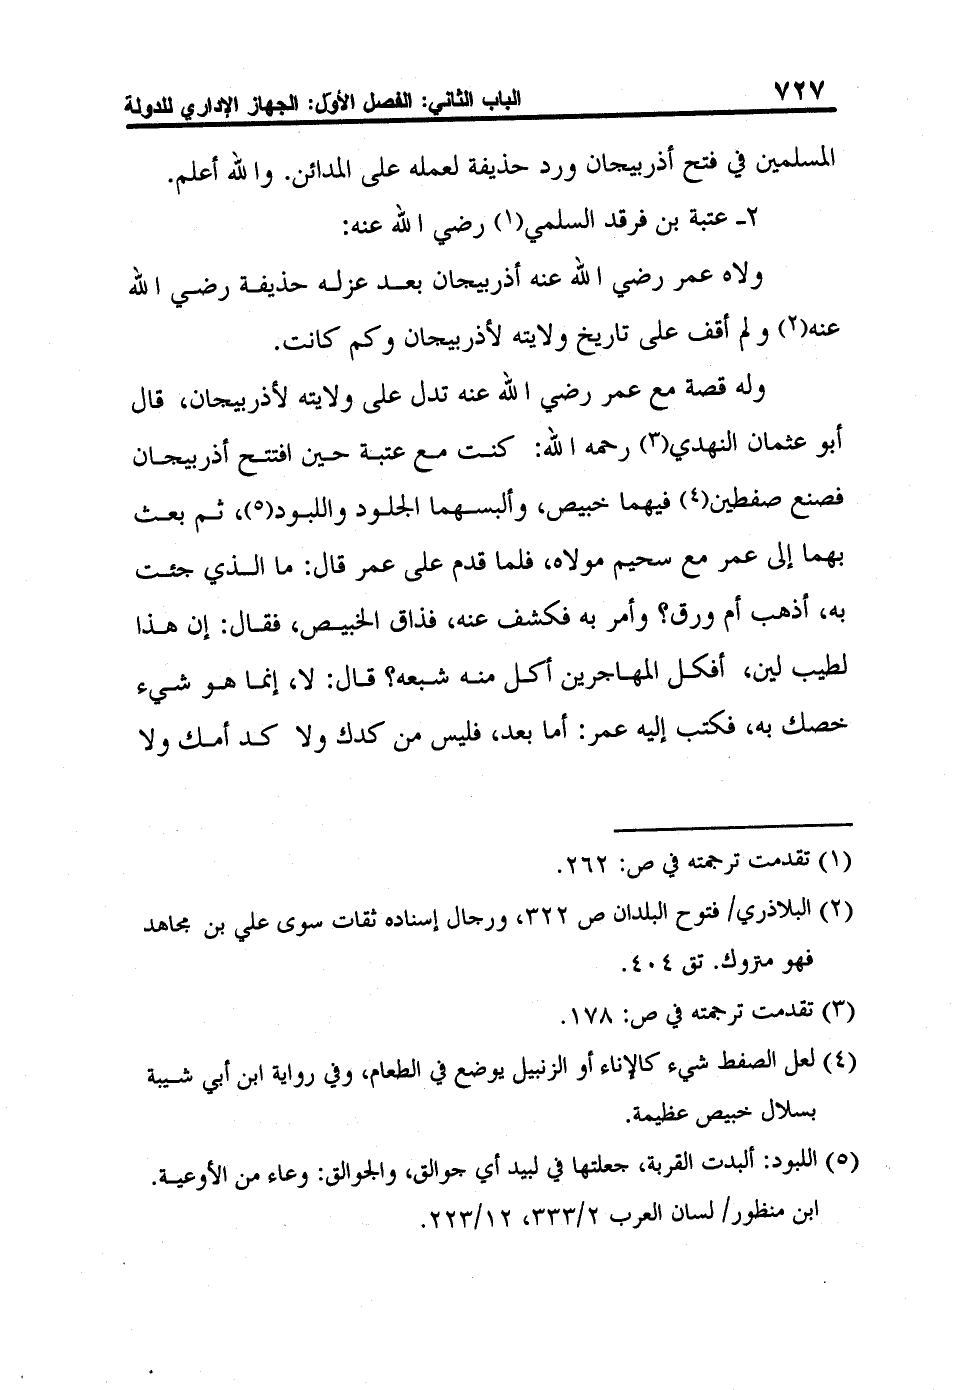 ٧٢٧ الباب الثاني: الفصل الأول: الجهاز الإداري للدولة
المسلمين في فتح أذربيجان ورد حذيفة لعمله على المدائن. والله أعلم.
٢ـ عتبة بن فرقد السلمي(١) رضي الله عنه:
ولاه عمر رضي الله عنه أذربيجان بعد عزله حذيفة رضي الله
عنه(٢) ولم أقف على تاريخ ولايته لأذربيجان وكم كانت.
وله قصة مع عمر رضي الله عنه تدل على ولايته لأذربيجان، قال
أبو عثمان النهدي(٣) رحمه الله: كنت مع عتبة حين افتتح أذربيجان
فصنع صفطين(٤) فيهما خبيص، وألبسهما الجلود واللبود(٥)، ثم بعث
بهما إلى عمر مع سحيم مولاه، فلما قدم على عمر قال: ما الذي جئت
به، أذهب أم ورق؟ وأمر به فكشف عنه، فذاق الخبيص، فقال: إن هذا
لطيب لين، أفكل المهاجرين أكل منه شبعه؟ قال: لا، إنما هو شيء
خصك به، فكتب إليه عمر: أما بعد، فليس من كدك ولا كد أمك ولا
(١) تقدمت ترجمته في ص: ٢٦٢.
(٢) البلاذري/ فتوح البلدان ص ٣٢٢، ورجال إسناده ثقات سوى علي بن مجاهد
فهو متروك. تق ٤٠٤.
(٣) تقدمت ترجمته في ص: ١٧٨.
(٤) لعل الصفط شيء كالإناء أو الزنبيل يوضع في الطعام، وفي رواية ابن أبي شيبة
بسلال خبيص عظيمة.
(٥) اللبود: ألبدت القربة، جعلتها في لبيد أي جوالق، والجوالق: وعاء من الأوعية.
ابن منظور/ لسان العرب ٣٣٣/٢، ٢٢٣/١٢.